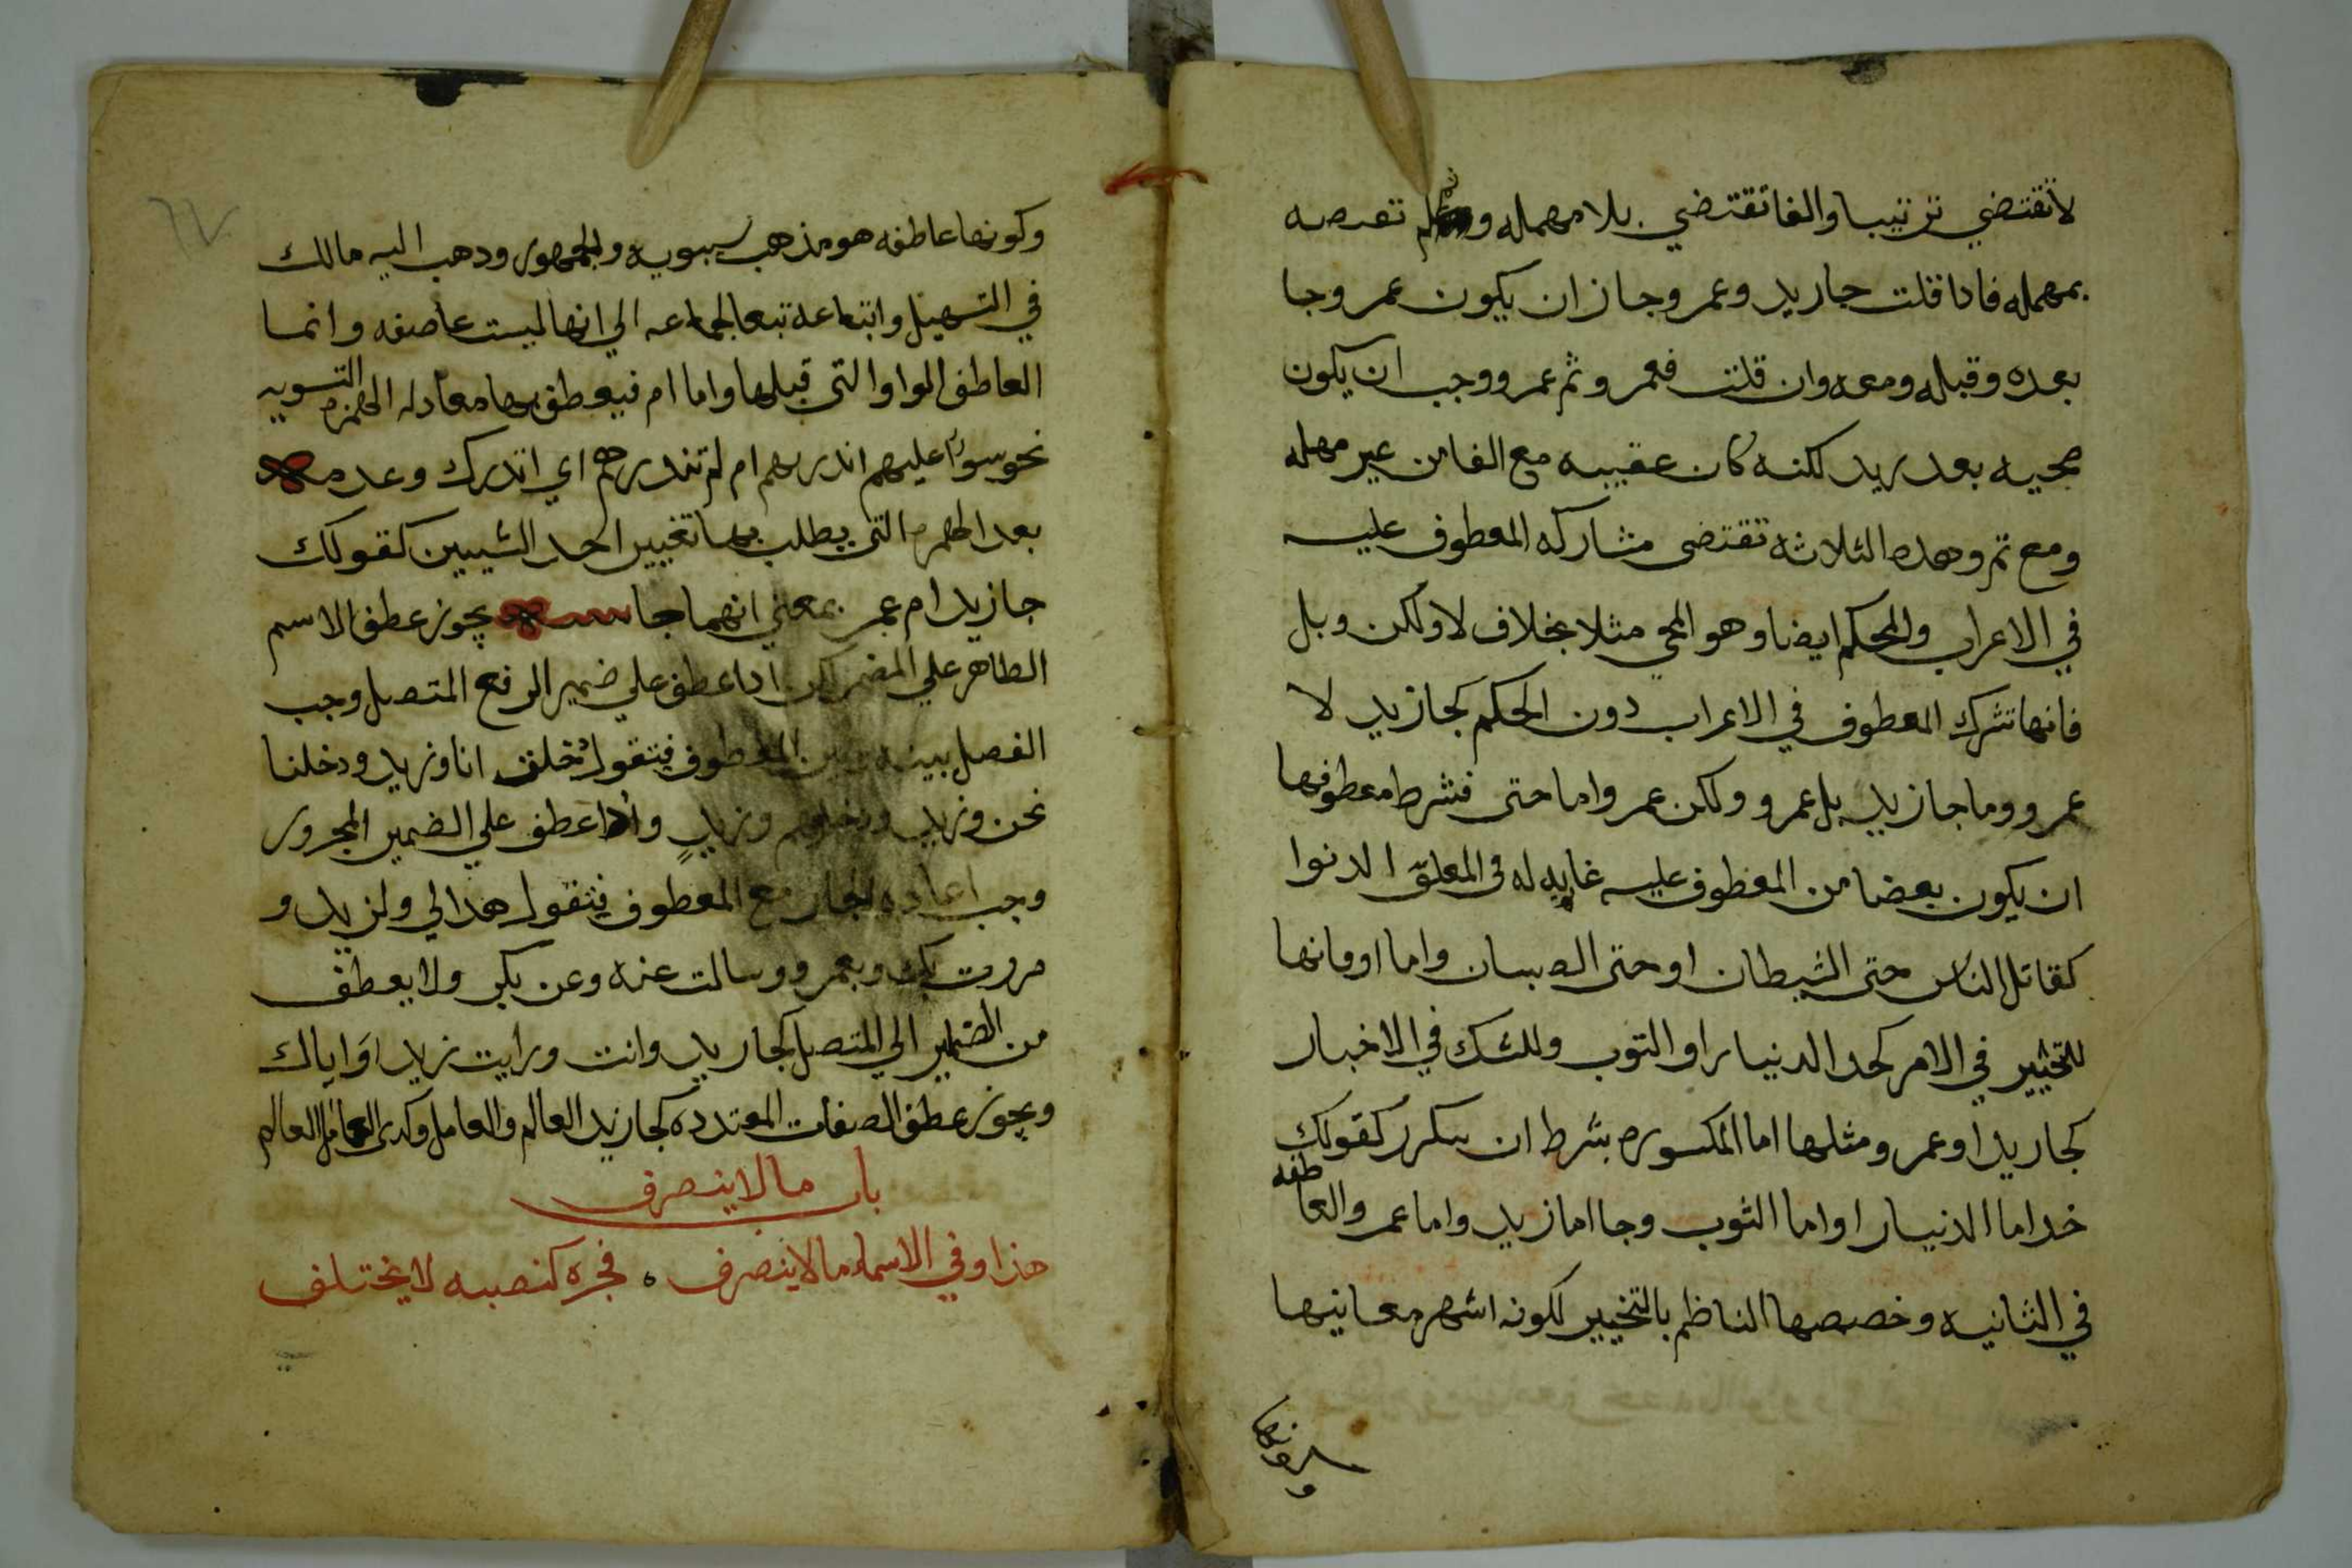 لاتقتضي ترتيبا والفا تقتضي بلا مهمله وثم تقتضيه
بمهمله فادا قلت جازيد وعمر وجاز ان يكون عمر وجا
بعده وقبله ومعه وان قلت فعمر وثم عمر ووجب ان يكون
مجيه بعد زيد لكنه كان عقيبه مع الفا من غير مهله
ومع ثم وهده الثلاثه تقتضي مشاركه المعطوف عليه
في الاعراب والحكم ايضا وهو المجي مثلا بخلاف لا ولكن وبل
فانها تشرك المعطوف في الاعراب دون الحكم كجازيد لا
عمر ووما جازيد بل عمرو ولكن عمر واما حتى فشرط معطوفها
ان يكون بعضا من المعطوف عليه غايه له في المعلق
كقاتل الناس حتى الشيطان او حتى الصبيان واما او فانها
للتخيير في الامر كحد الدنيار او التوب وللشك في الاخبار
كجازيد او عمر ومثلها اما المكسوره بشرط ان تتكرر كقولك
خد اما الدنيار او اما الثوب وجا اما زيد واما عمر والعاطفه
في الثانيه وخصصها الناظم بالتخيير لكونه اشهر معانيها
وكونها
وكونها عاطفه هو مذهب سيبويه والجمهور ودهب اليه مالك
في التسهيل واتباعه تبعا لجماعه الي انها ليست عاصفه وانما
العاطف الواو التي قبلها واما ام فيعطف بها معادله الهمزه التسويه
نحو سوا عليهم اندرىهم ام لم تندرهم اي اندرك وعدمه
بعد الهمزه التي يطلب بها تغيير احد الشيين كقولك
جازيد ام عمر بمعني ايهما جا يجوز عطف الاسم
الظاهر علي المضمر لكن ادا عطف علي ضمير الرفع المتصل وجب
الفصل بينه وبين المعطوف فيتقول دخلت انا وزيد ودخلنا
نحن وزيد وزيد وادا عطف علي الضمير المجرور
وجب اعاده الجار مع المعطوف فيتقول هدا لي ولزيد و
مررت بك وبعمر ووسالت عنه وعن بكر ولا يعطف
من الضمير الي المتصل كجازيد وانت ورايت زيد اواياك
ويجوز عطف الصفات المعتدده كجازيد العالم والعامل وكدى العامل العالم
باب ما لا ينصرف
هذا وفي الاسماء ما لا ينصرف ه فجره كنصبه لا يختلف